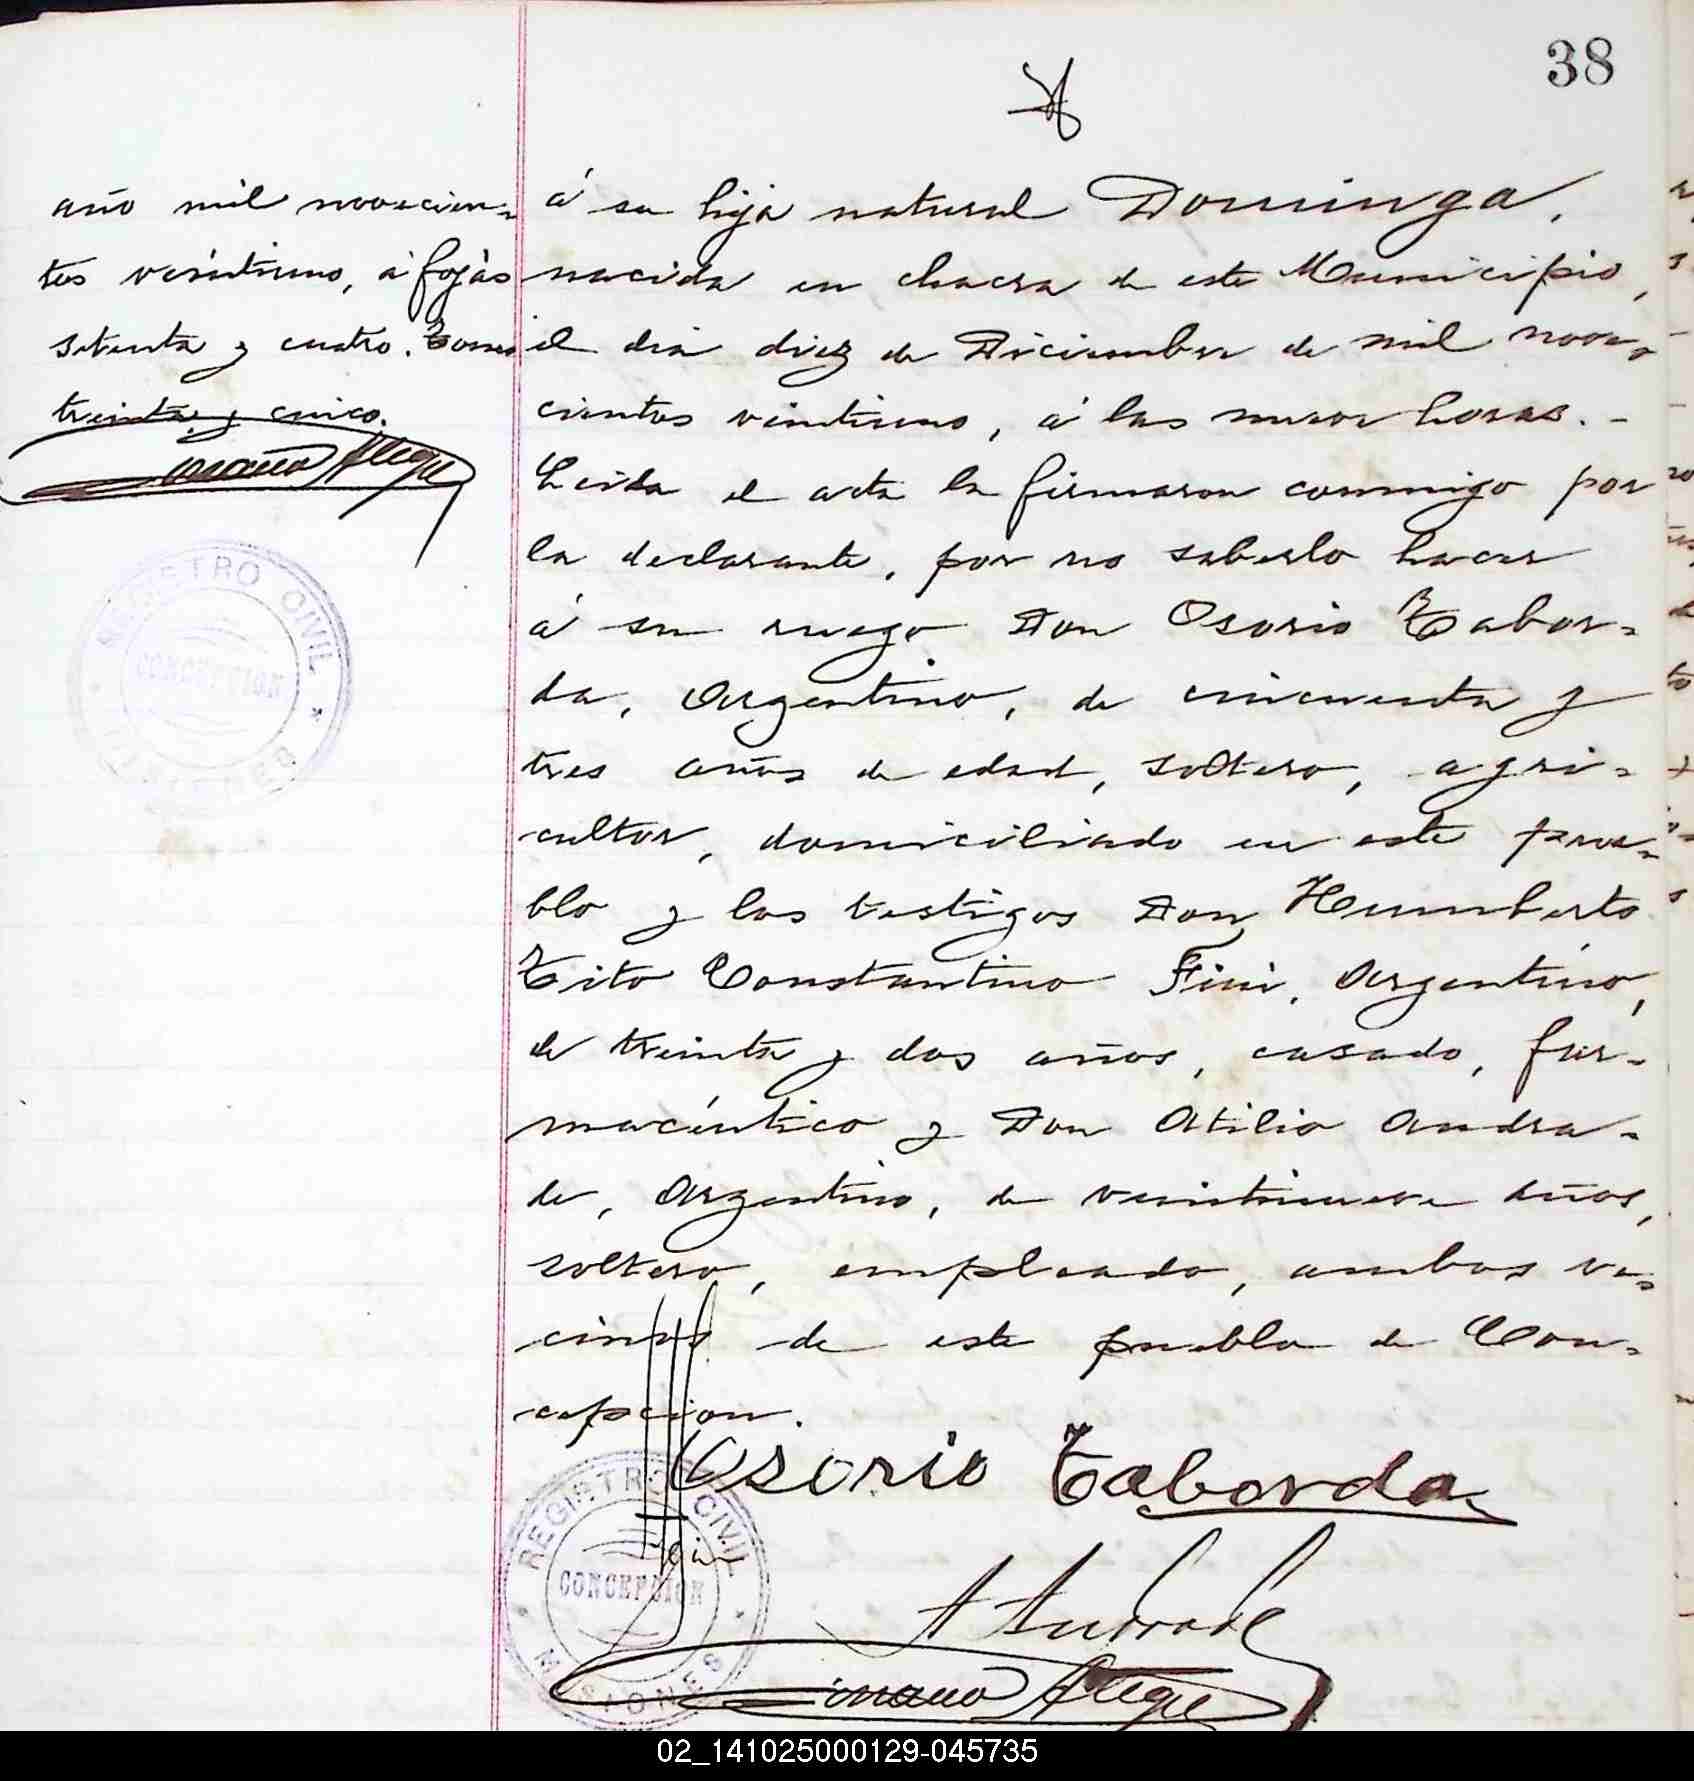 38
año mil novecien-
tos veintiuno, á fojas
setenta y cuatro. Tomo
treinta y cinco.
REGISTRO CIVIL
CONCEPCION
MISIONES
á su hija natural Dominga,
nacida en chacra de este Municipio,
el dia diez de Diciembre de mil nove-
cientos veintiuno, á las nueve horas. -
Leida el acta la firmaron conmigo por
la declarante, por no saberlo hacer
á su ruego Don Osorio Tabor-
da, Argentino, de cincuenta y
tres años de edad, soltero, agri-
cultor, domiciliado en este pue-
blo y los testigos Don Humberto
Tito Constantino Fini, Argentino,
de treinta y dos años, casado, far-
macéutico y Don Atilio Andra-
de, Argentino, de veintinueve años,
soltero, empleado, ambos ve-
cinos de este pueblo de Con-
cepcion.
Osorio Taborda
A Andrade
REGISTRO CIVIL
CONCEPCION
MISIONES
02_141025000129-045735